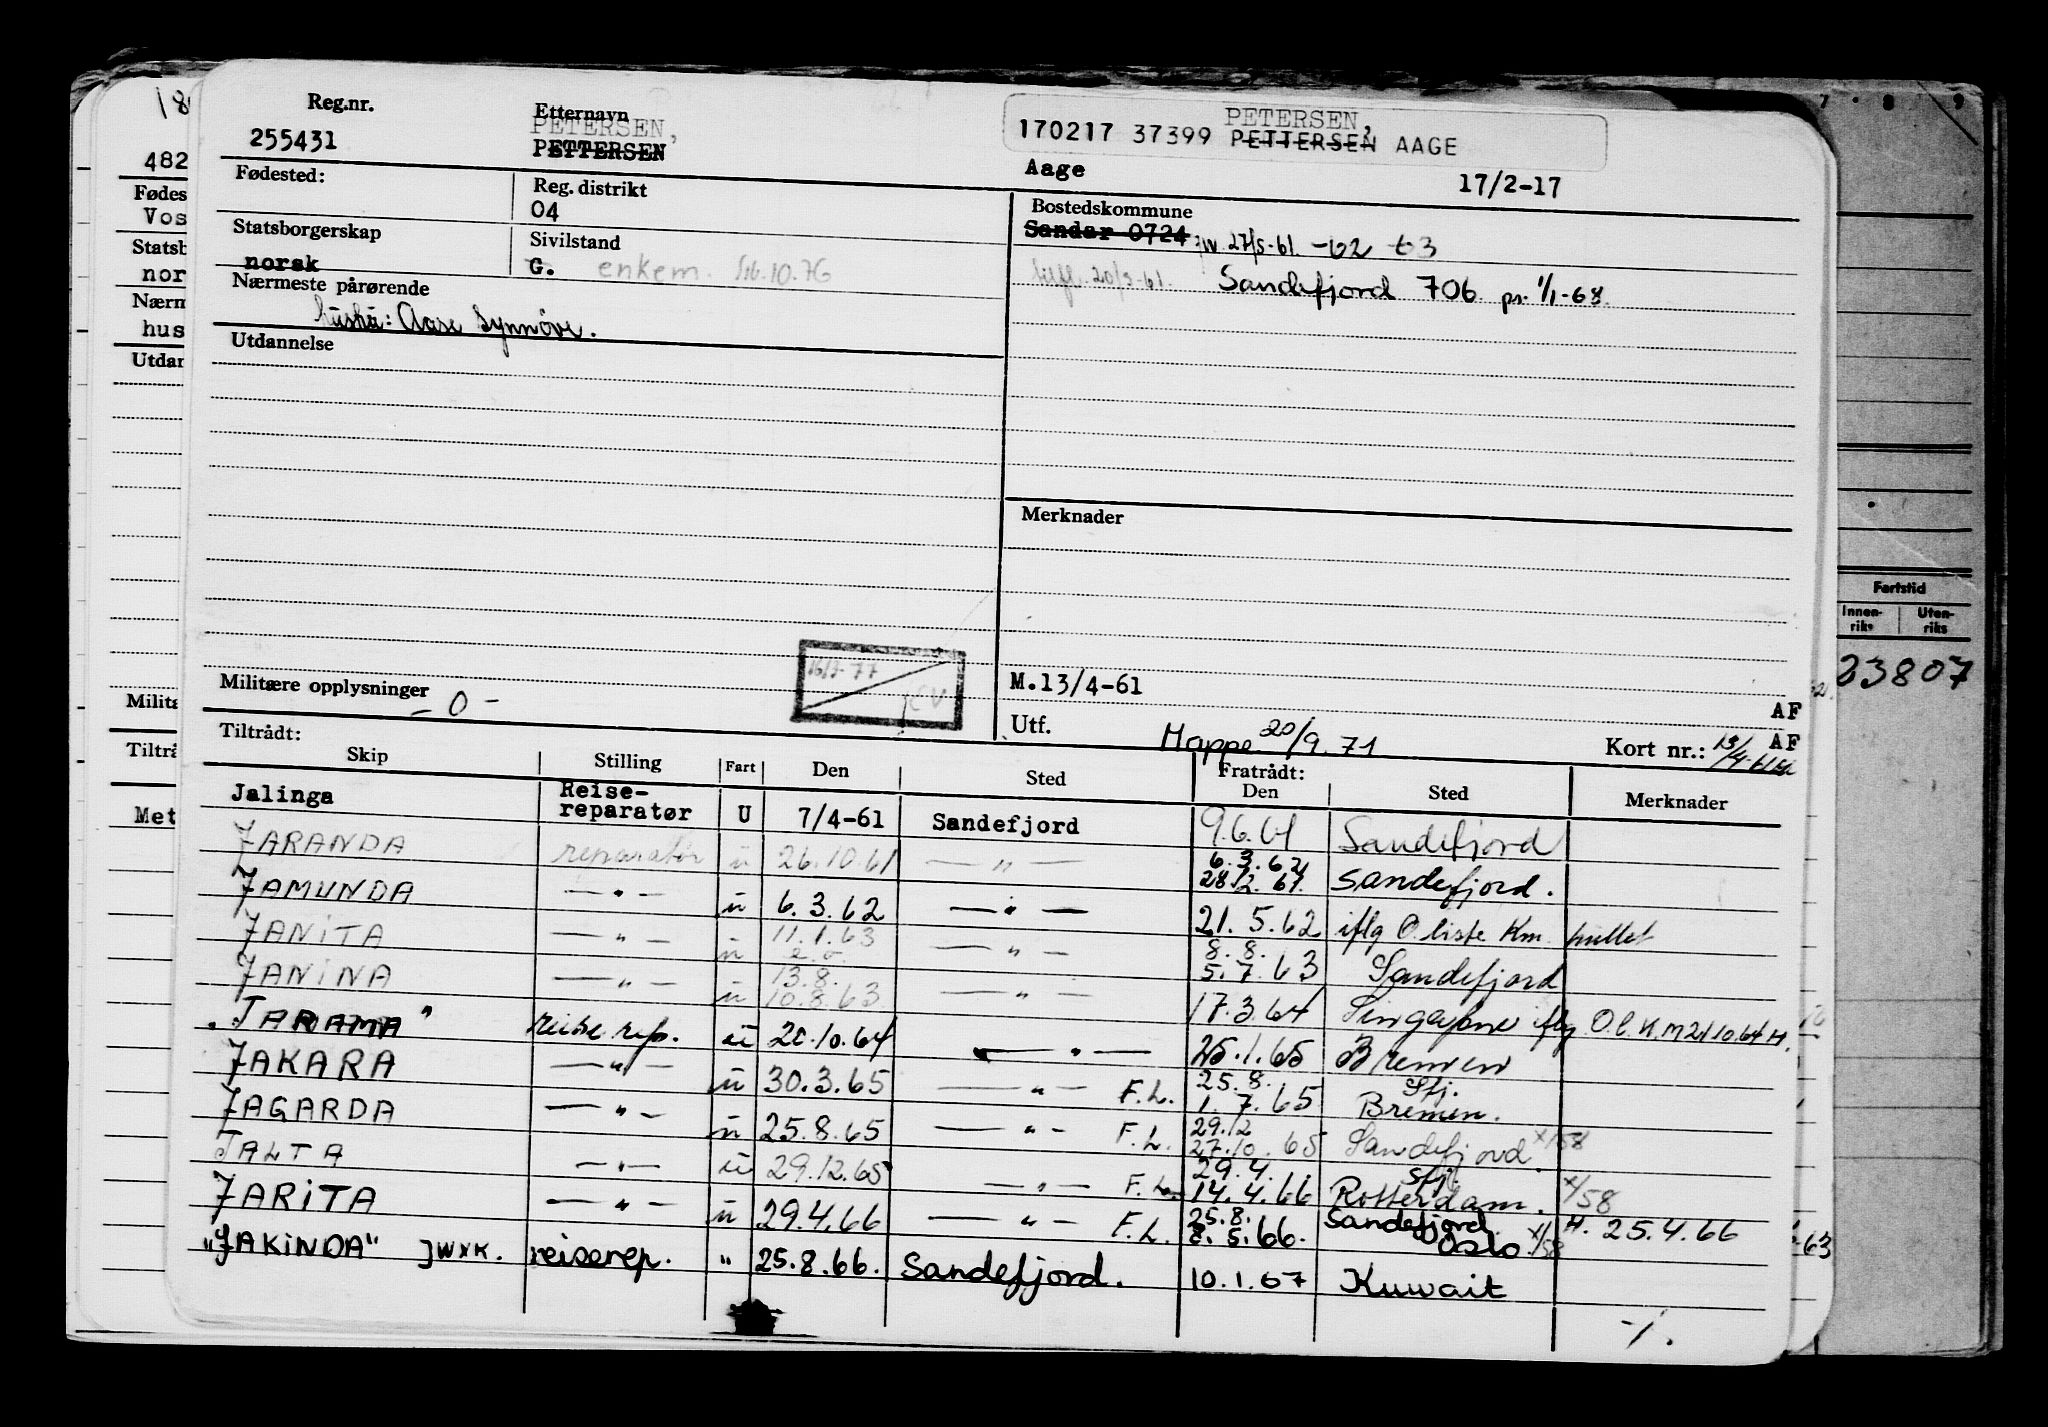 Reg.nr.
255431
Etternavn
PETERSEN,
PETTERSEN
PETERSEN,
170217 37399 PETTERSEN AAGE
Aage
17/2-17
Fødested:
Reg. distrikt
04
Bostedskommune
Sandar 0724 27/5-61. -62 63
20/3-61. Sandefjord 706 pr. 1/1-68.
Statsborgerskap
norsk
Sivilstand
G. enkem. 10.76
Nærmeste pårørende
hustru: Aase Synnøve.
Utdannelse
Merknader
Militære opplysninger
- 0 -
16/2-77
M.13/4-61
AF
Utf.
Mappe 20/9.71
Kort nr.:
AF
Tiltrådt:
Skip Stilling Fart Den Sted
Fratrådt:
Den Sted Merknader
Jalinga Reise-
reparatør U 7/4-61 Sandefjord 9.6.61 Sandefjord
JARANDA reparatør u 26.10.61 — " — 6.3.62
28.12.61. Sandefjord.
JAMUNDA — " — u 6.3.62 — " — 21.5.62 iflg O. liste Km.
JANITA — " — u 11.1.63 — " — 8.8.
5.7.63 Sandefjord
JANINA — " — u 13.8.
10.8.63 — " — 17.3.64 Singapore iflg O.l. K.M 21.10.64 H.
"JARAMA" reise rep. u 20.10.64 — " — 25.1.65 Bremen
JAKARA — " — u 30.3.65 — " — F.L. 25.8.
1.7.65 Sfj.
Bremen.
JAGARDA — " — u 25.8.65 — " — F.L. 29.12
27.10.65 Sandefjord x/58
JALTA — " — u 29.12.65 — " — F.L. 29.4.
14.4.66 Sfj.
Rotterdam. x/58
JARITA — " — u 29.4.66 — " — F.L. 25.8.
2.5.66. Sandefjord
Oslo x/58 H. 25.4.66
"JAKINDA" JWXK. reiserep. " 25.8.66. Sandefjord. 10.1.67 Kuwait
-/.
18
482
Fødes
Vos
Statsb
nor
Nærm
hus
Utdan
Milita
Tiltrå
Met
7 8 9
Fartstid
Innen-
riks
Uten-
riks
23807
-63